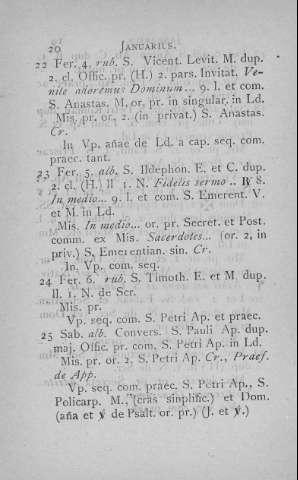 20 JANUARIUS.
22 Fer. 4. rub. S. Vicent. Levit. M. dup.
2. cl. Offic. pr. (H.) 2. pars. Invitat. Ve-
nite adoremus Dominum... 9. l. et com.
S. Anastas. M. or. pr. in singular. in Ld.
Mis. pr. or. 2. (in privat.) S. Anastas.
Cr.
In Vp. añae de Ld. a cap. seq. com.
praec. tant.
23 Fer. 5. alb. S. Ildephon. E. et C. dup.
2. cl. (H.) ll 1. N. Fidelis sermo.. ℟ 8.
In medio... 9. l. et com. S. Emerent. V.
et M. in Ld.
Mis. In medio... or. pr. Secret. et Post.
comm. ex Mis. Sacerdotes... (or. 2, in
priv.) S, Emerentian. sin. Cr.
In. Vp. com. seq.
24 Fer. 6. rub. S. Timoth. E. et M. dup.
ll. 1. N. de Scr.
Mis. pr.
Vp. seq. com. S. Petri Ap. et praec.
25 Sab. alb. Convers. S. Pauli Ap. dup.
maj. Offic. pr. com. S. Petri Ap. in Ld.
Mis. pr. or. 2. S. Petri Ap. Cr., Praef.
de App.
Vp. seq. com. praec. S. Petri Ap., S.
Policarp. M., (cras sinplific.) et Dom.
(aña et ℣ de Psalt. or. pr.) (J. et ℣.)